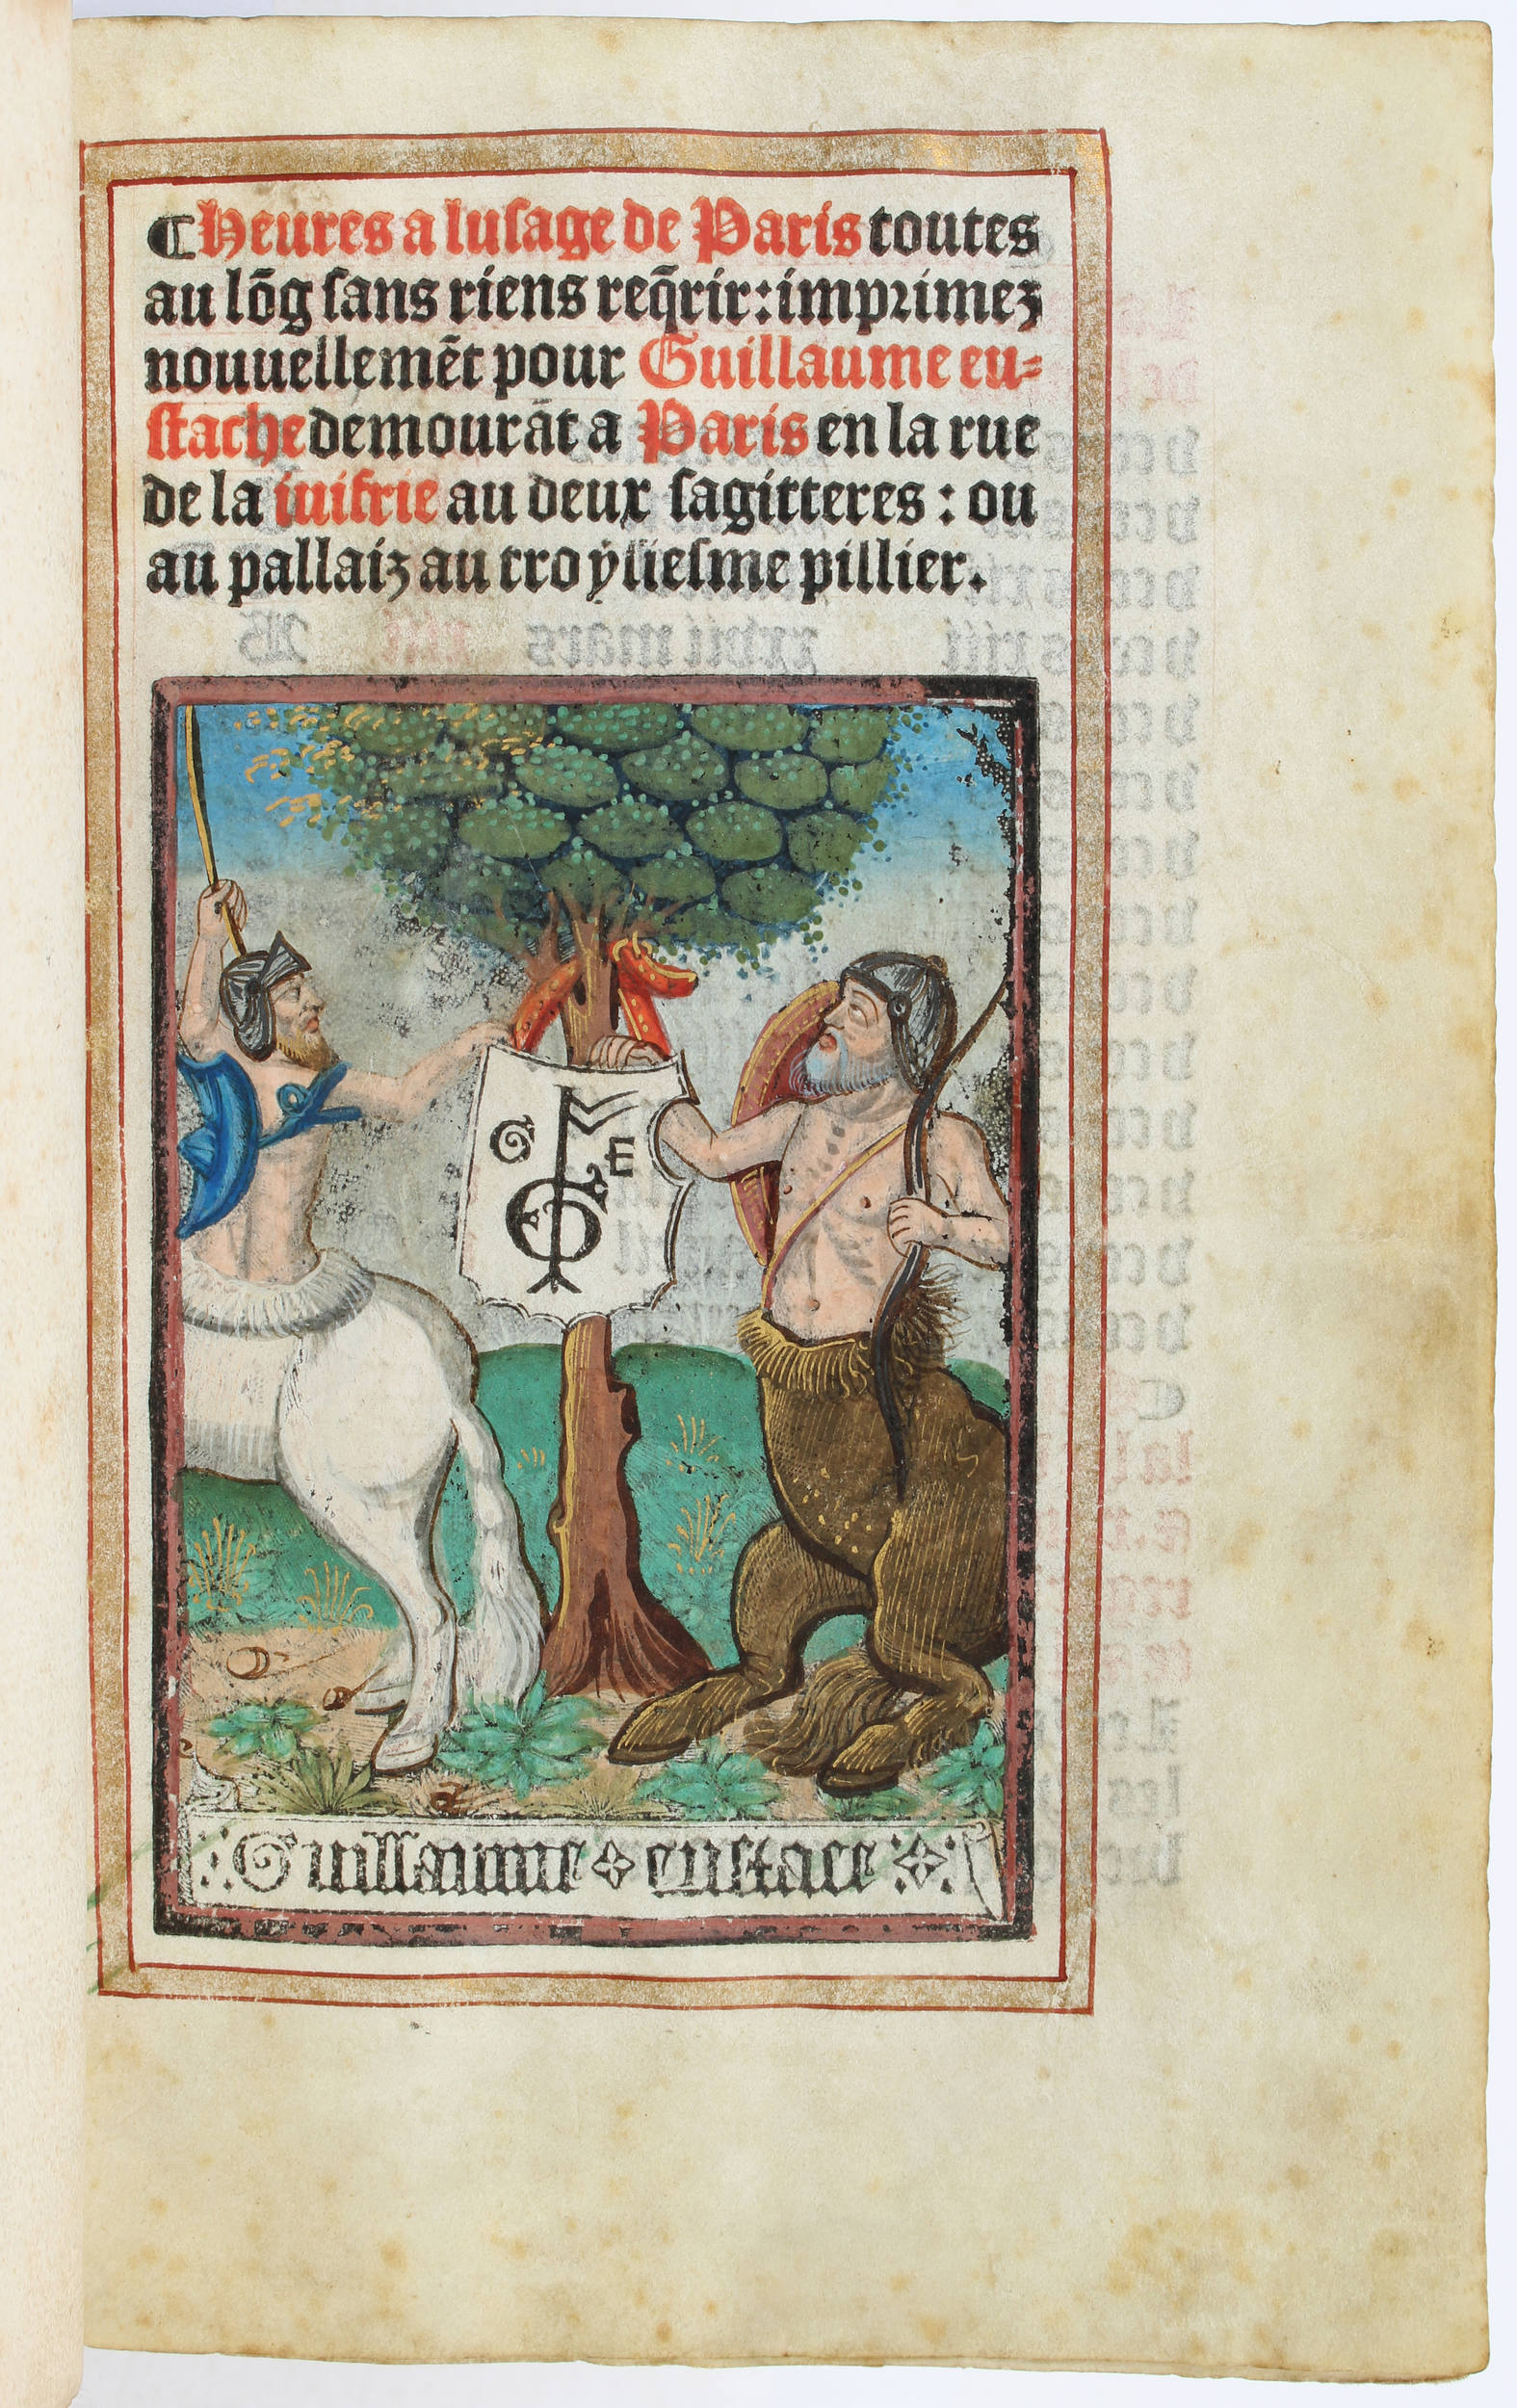 ⸿Heures a luſage de Paris toutes
au lõg ſans riens req̃rir: imprimez
nouuellemẽt pour Guillaume eu⸗
ſtache demourãt a Paris en la rue
de la iuifrie au deux ſagitteres: ou
au pallaiz au troyſieſme pillier.
G E
Guillaume euſtace